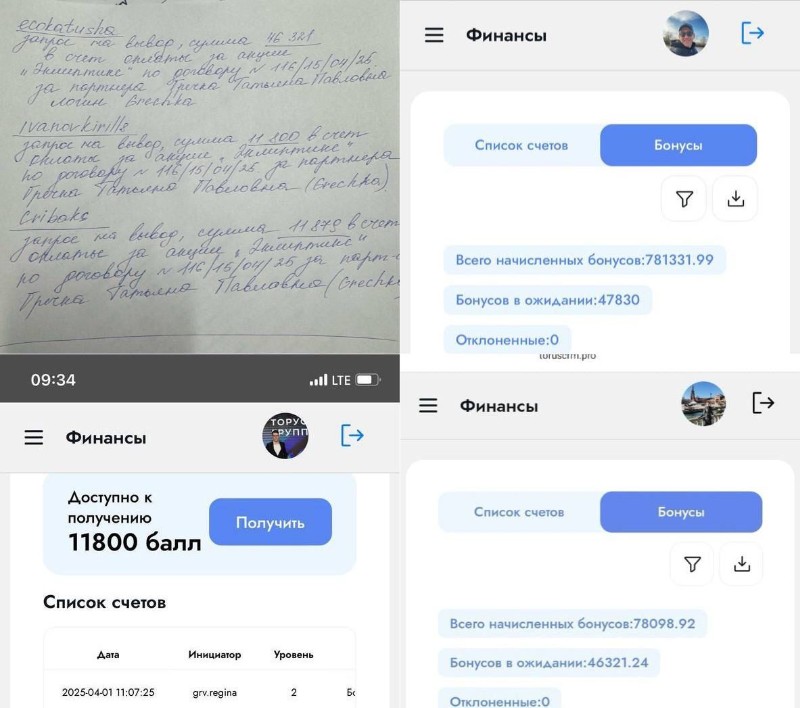 ecokatusha
запрос на вывод, сумма 46 321
в счет оплаты за акции
„Эклиптикс" по договору № 116/15/04/25
за партнера Гречка Татьяна Павловна
логин Grechka
Ivanovkirills
запрос на вывод, сумма 11 800 в счет
оплаты за акции „Эклиптикс"
по договору № 116/15/04/25 за партнера
Гречка Татьяна Павловна (Grechka)
запрос на вывод, сумма 11 879 в счет
оплаты за акции „Эклиптикс"
по договору № 116/15/04/25 за
Гречка Татьяна Павловна
Финансы
Список счетов
Бонусы
Всего начисленных бонусов:781331.99
Бонусов в ожидании:47830
Отклоненные:0
toruscrm.pro
09:34
LTE
Финансы
ТОРУС
ГРУПП
Доступно к
получению
11800 балл
Получить
Список счетов
Дата Инициатор Уровень
2025-04-01 11:07:25 grv.regina 2 Бо
Финансы
Список счетов
Бонусы
Всего начисленных бонусов:78098.92
Бонусов в ожидании:46321.24
Отклоненные:0